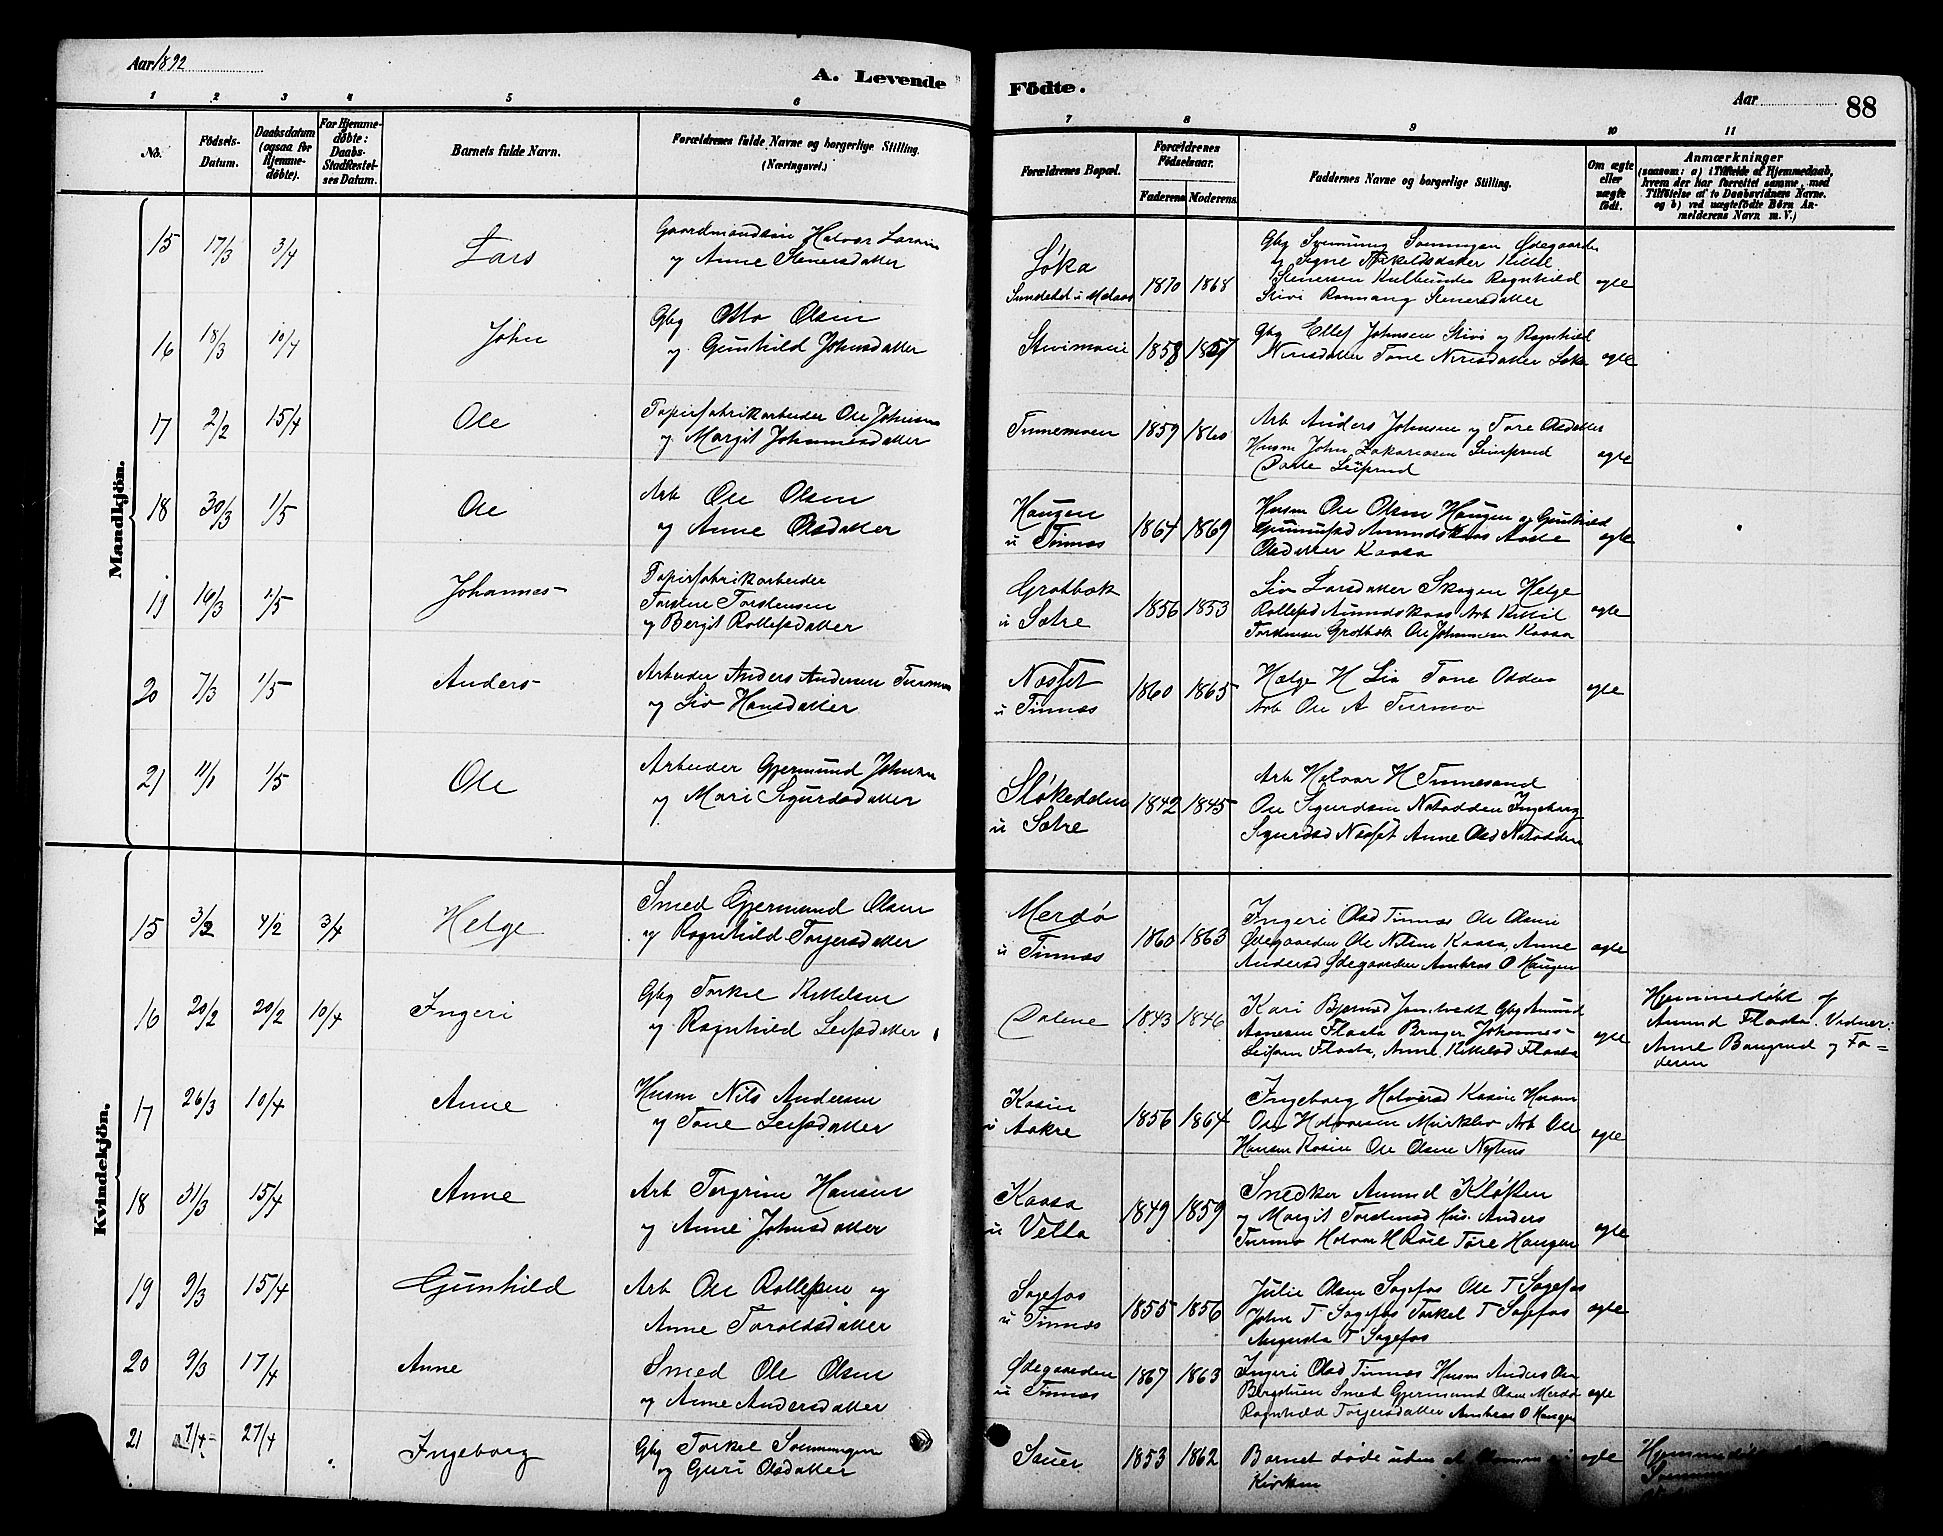 Aar 1892
A. Levende
Födte.
Aar
88
1 2 3 4 5 6
7 8 9 10 11
No.
Födsels-
Datum.
Daabsdatum
(ogsaa for
Hjemme-
døbte).
For Hjemme-
døbte:
Daabs-
Stadfæstel-
ses Datum.
Barnets fulde Navn.
Forældrenes fulde Navne og borgerlige Stilling.
(Næringsvei.)
Forældrenes Bopæl.
Forældrenes
Födselsaar.
Faderens Moderens
Faddernes Navne og borgerlige Stilling.
Om ægte
eller
uægte
födt.
Anmærkninger
(saasom: a) i Tilfælde af Hjemmedaab,
hvem der har forrettet samme, med
Tilföielse af to Daabsvidners Navne.
og b) ved uægtefödte Börn An-
melderens Navn m.V.)
Mandkjön.
15 17/3 3/4 Lars
Gaardmandssön Halvor Larsen
og Anne Stenersdatter
Løka
1870 1868
Gbg Svennung Svenningsen Ødegaarden
Ragnhild
Stenersdatter
ægte
16 18/3 10/4 John
Gbg Otto Olsen
og Gunhild Johnsdatter
Stivimoen
1858 1857
Gbg Ellef Johnsen Stivi og Ragnhild
Nirisdatter Tone Nirisdatter Løka
ægte
17 2/2 15/4 Ole
Papirfabrikarbeider Ole Johnsen
og Margit Johannesdatter
Tinnemoen
1859 1860
Arb Anders Johnsen og Tore Olsdatter
Husm John Zakariasen
ægte
18 30/3 1/5 Ole
Arb Ole Olsen
og Anne Olsdatter
Haugen
u Tinnæs
1864 1869
Husm Ole Olsen Haugen og Gunhild
Olsdatter Kaasa
ægte
19 16/3 1/5 Johannes
Papirfabrikarbeider
Torsten Torstensen
og Bergit Rollefsdatter
Grotbæk
u Sætre
1856 1853
Liv Larsdatter Skogen Helge
Arb Kittil
Torstensen Grotbæk Ole Johannesen Kaasa
ægte
20 7/3 1/5 Anders
Arbeider Anders Andersen Turmo
og Liv Hansdatter
Næsset
u Tinnæs
1860 1865
Helge H Lia Tone
Arb Ole A Turmo
ægte
21 11/1 1/5 Ole
Arbeider Gjermund Johnsen
og Mari Sigurdsdatter
Sløkedden
u Sætre
1842 1845
Arb Halvor H Tinnesand
Ole Sigurdsen Notodden Ingeborg
Sigurdsd Næsset Anne Olsd Notodden
Kvindekjön.
15 3/2 4/2 3/4 Helge
Smed Gjermund Olsen
og Ragnhild Torjersdatter
Merdø
u Tinnæs
1860 1863
Ingeri Olsd Tinnæs Ole Olsen
Ødegaarden Ole Nilsen Kaasa, Anne
Andersd Ødegaarden Ambros O Haugen
ægte
16 20/2 20/2 10/4 Ingeri
Gbg Torkel Kittelsen
og Ragnhild Leifsdatter
Dalene
1843 1846
Kari Bjørnsd Gbg Amund
Flaata Bruger Johannes
Leifsen Flaata, Anne Kittelsd Flaata
ægte
Hjemmedøbt af
Amund Flaata. Vidner:
Anne Bangrud og Fa=
deren
17 26/3 10/4 Anne
Husm Nils Andersen
og Tone Leifsdatter
Kasin
u Aakre
1856 1864
Ingeborg Halvorsd Kasin Husm
Ole Halvorsen Arb Ole
Hansen Kasin Ole Olsen
ægte
18 31/3 15/4 Anne
Arb Torgrim Hansen
og Anne Johnsdatter
Kaasa
u Vetta
1849 1859
Snedker Amund Kløften
og Margit Torstensd Hus. Anders
Turmo Halvor H Tore Haugen
ægte
19 9/3 15/4 Gunhild
Arb Ole Rollefsen og
Anne Toroldsdatter
Sagefos
u Tinnæs
1855 1856
Julie Olsen Sagefos Ole T Sagefos
John T Sagefos Torkel T Sagefos
Augusta T Sagefos
ægte
20 9/3 17/4 Anne
Smed Ole Olsen
og Anne Andersdatter
Ødegaarden
u Tinnæs
1867 1863
Ingeri Olsd Tinnæs Husm Anders
Smed Gjermund Olsen Merdø
Ragnhild Torjersdatter Ambros O Haugen
ægte
21 7/4 27/4 Ingeborg
Gbg Torkel Svenningsen
og Guri Olsdatter
Sauer
1853 1862
Barnet døde uden at komme i
Kirken
ægte
Hjemmedøbt